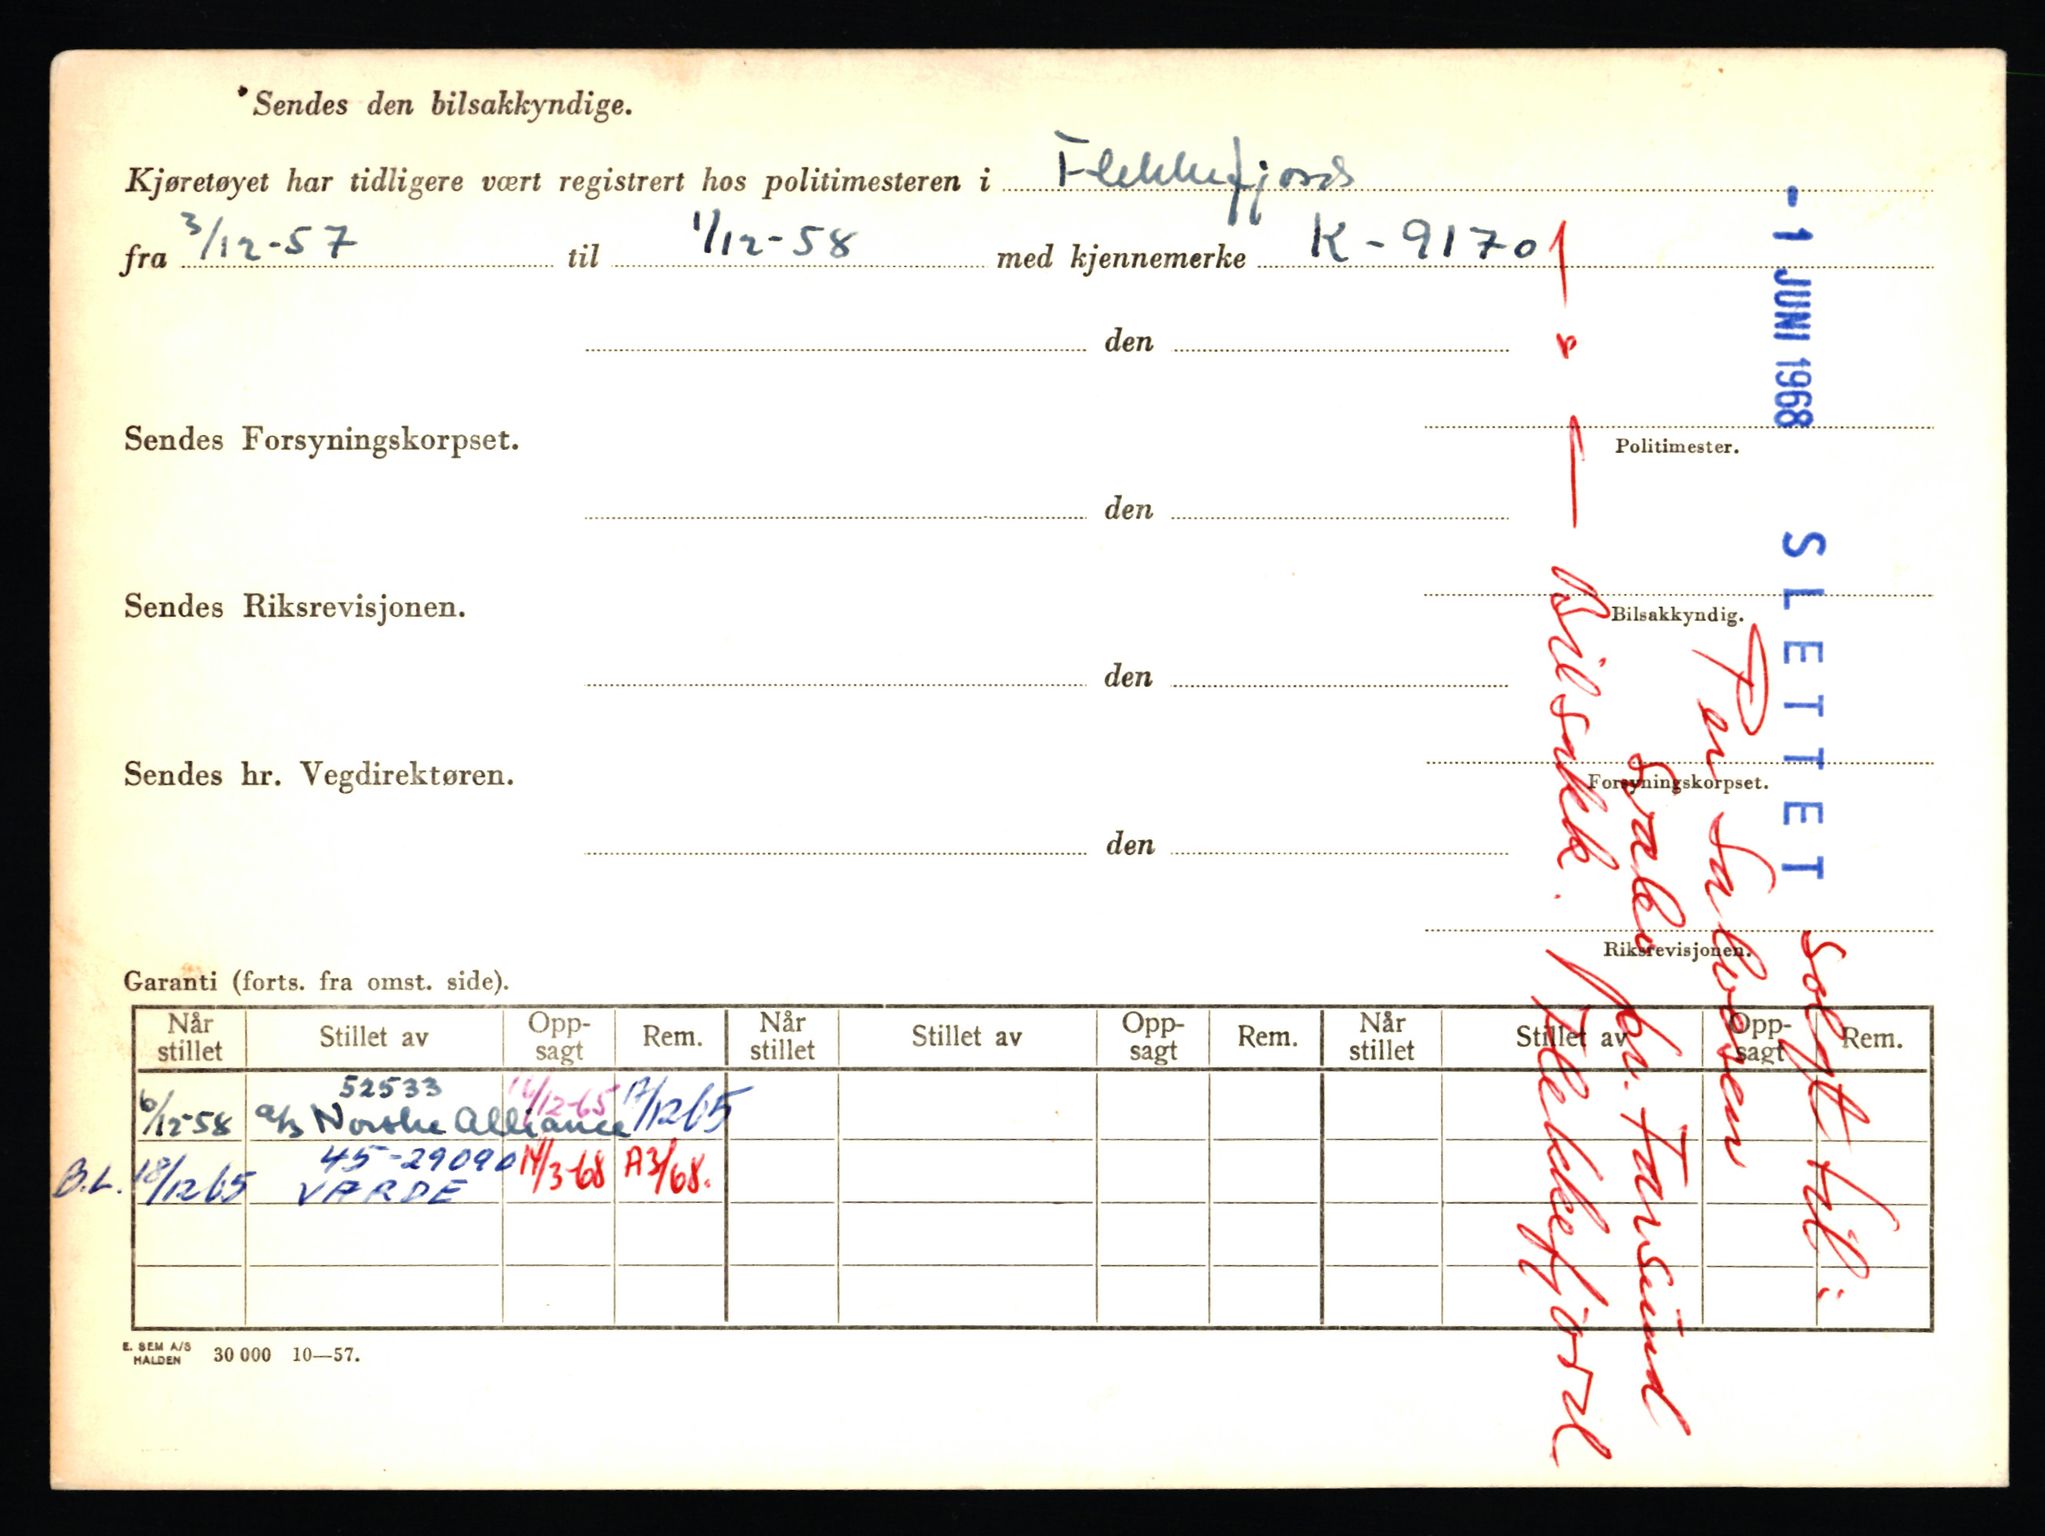 Sendes den bilsakkyndige.
Kjøretøyet har tidligere vært registrert hos politimesteren i Flekkefjord
fra 3/12-57 til 1/12-58 med kjennemerke K-9170
den
Politimester.
Sendes Forsyningskorpset.
den
Bilsakkyndig.
Sendes Riksrevisjonen.
den
Forsyningskorpset.
Sendes hr. Vegdirektøren.
den
Riksrevisjonen.
Garanti (forts. fra omst. side).
Når stillet Stillet av Opp-sagt Rem. Når stillet Stillet av Opp-sagt Rem. Når stillet Stillet av Opp-sagt Rem.
52533
6/12-58 a/s Norske Alliance 16/12-65 17/12 65
B.L. 18/12 65 45-29090 VARDE 14/3-68 A3/68.
E. SEM A/S
HALDEN 30 000 10—57.
- 1 JUNI 1968 SLETTET
Solgt til:
Per Salvesen
pr. Farsund
Bilsakk. Flekkefjord